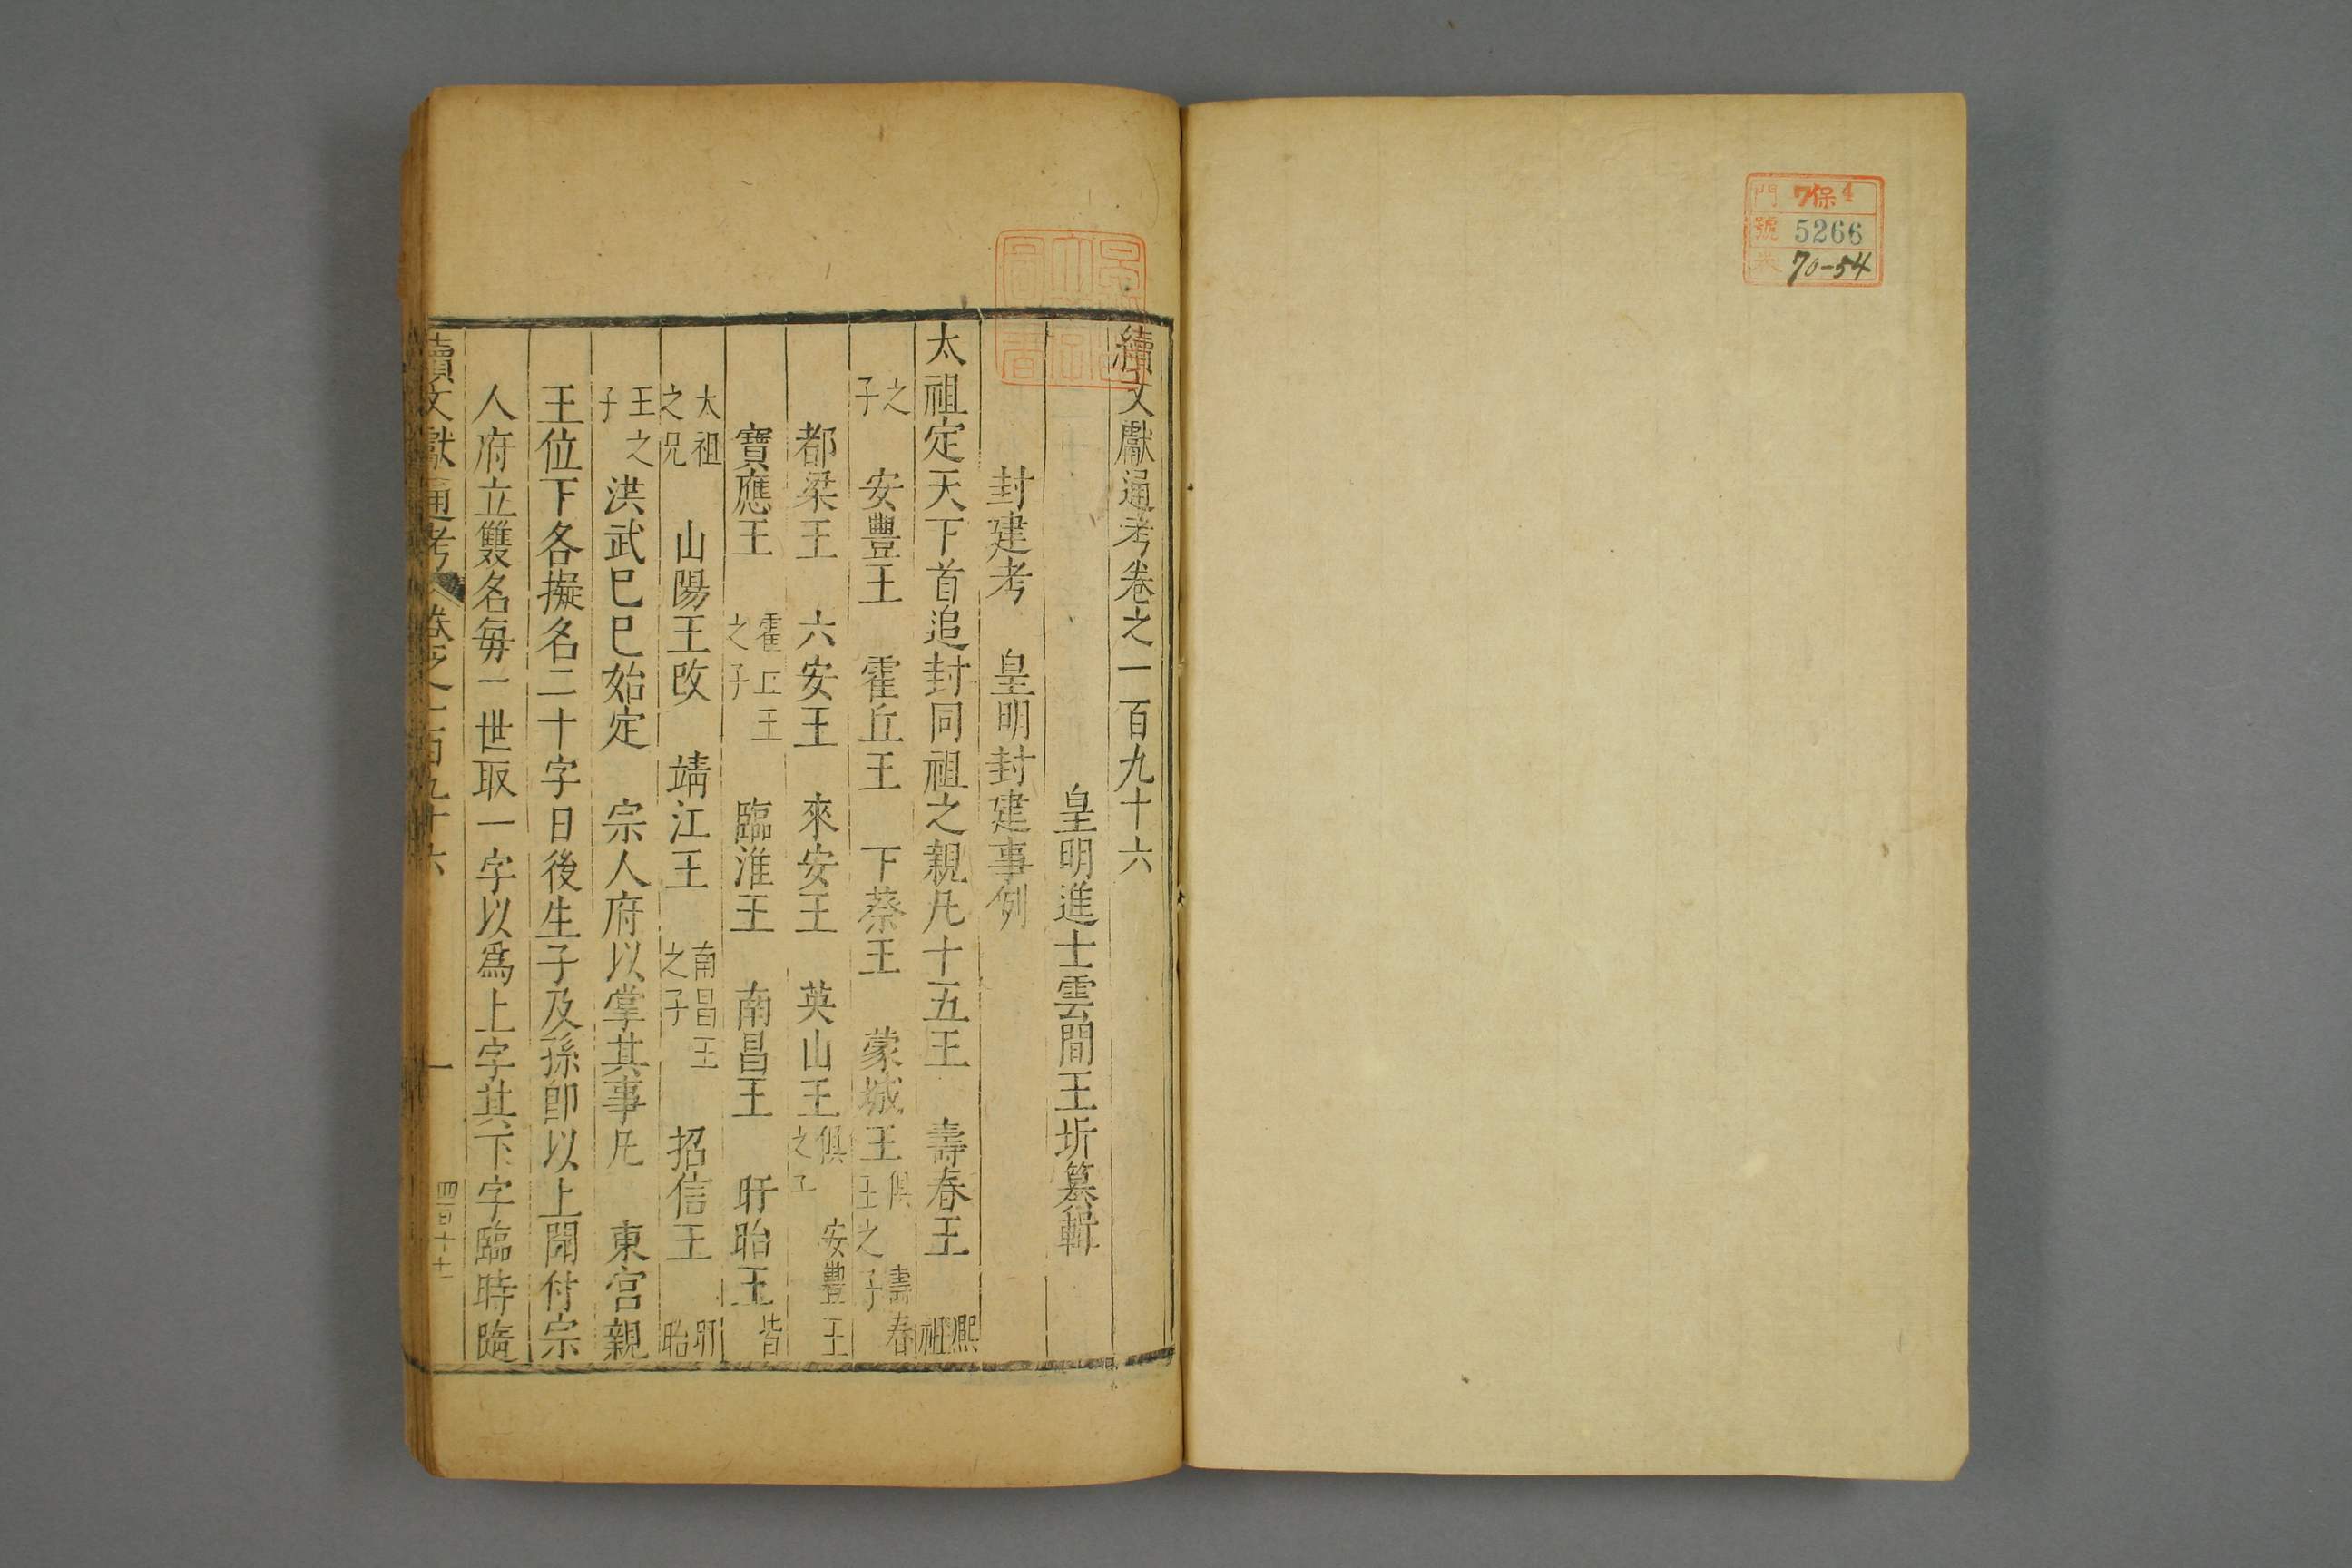 門 7保4
號 5266
70-54
續文獻通考卷之一百九十六
皇明進士雲間王圻纂輯
封建考 皇明封建事例
太祖定天下首追封同祖之親凡十五王 壽春王 熙祖
之子 安豐王 霍丘王 下蔡王 蒙城王 俱壽春王之子
都梁王 六安王 來安王 英山王 俱安豐王之子
寶應王 霍丘王之子 臨淮王 南昌王 盱眙王 皆
太祖之兄 山陽王改 靖江王 南昌王之子 招信王 盱眙
王之子 洪武己巳始定 宗人府以掌其事凡 東宮親
王位下各擬名二十字日後生子及孫卽以上聞付宗
人府立雙名每一世取一字以爲上字其下字臨時隨
續文獻通考 卷之一百九十六 一